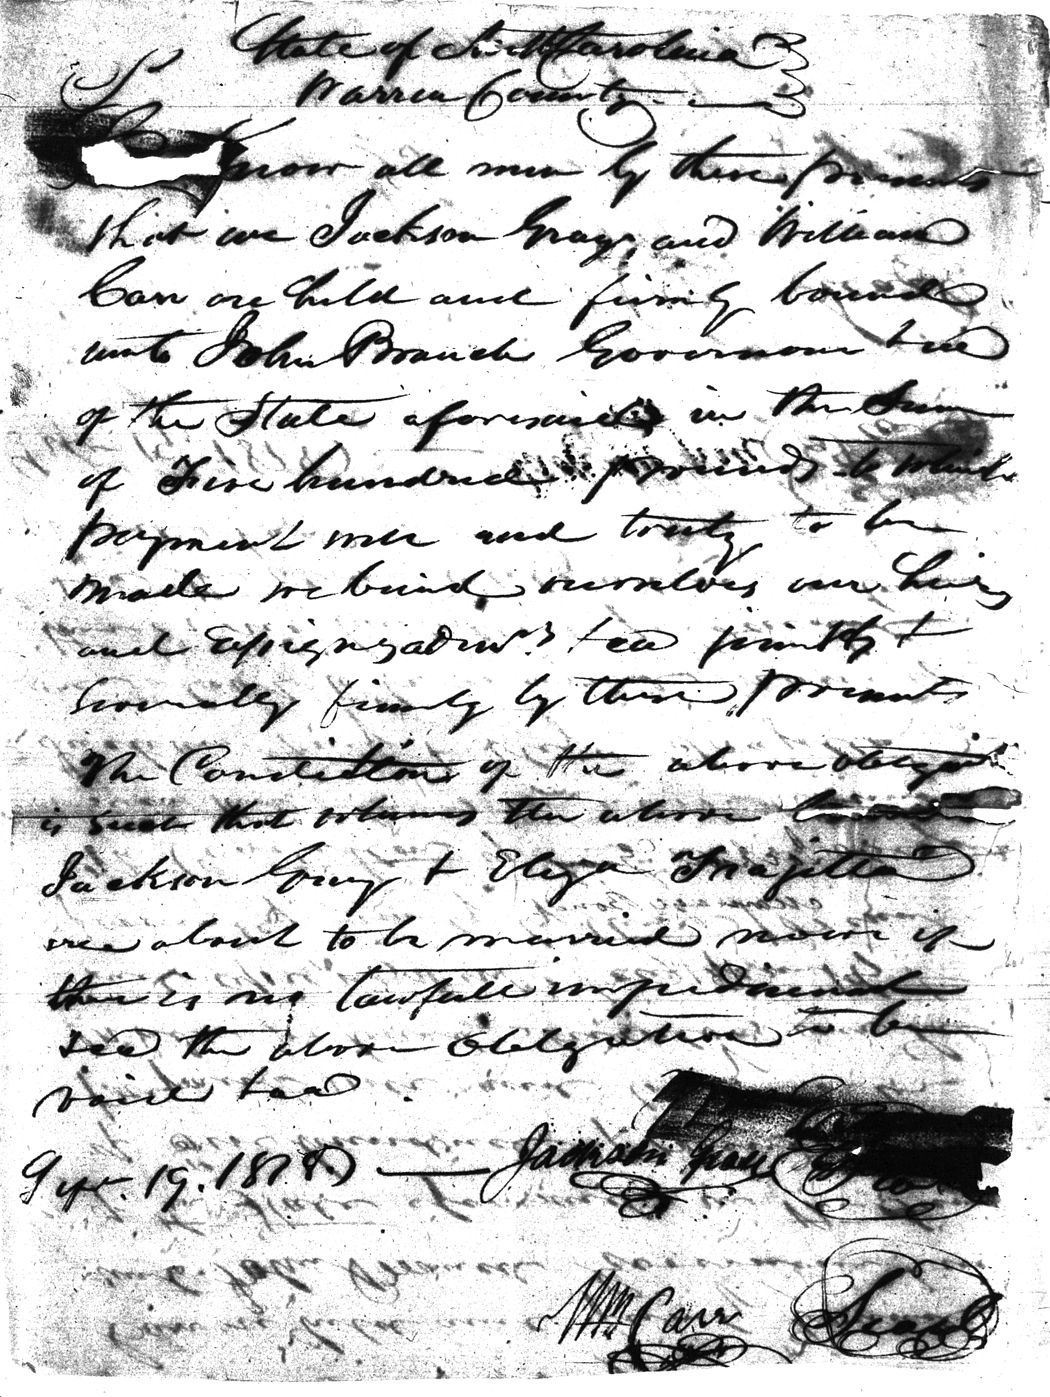 State of North Carolina
Warren County
Know all men by these presents
that we Jackson Gray, and William
Carr are held and firmly bound
unto John Branch Governour &c
of the State aforesaid in the Sum
of Five hundred pounds to which
payment well and truly to be
made we bind ourselves our heirs
and assigns, adms. &c jointly &
severally firmly by these presents
The Condition of the above obligat
is such that whereas the above bound
Jackson Gray & Eliza
are about to be married now if
there is no lawfull impediment
the above obligation to be
void &c
Sept. 19. 1818 Jackson Gray
Wm Carr Seal